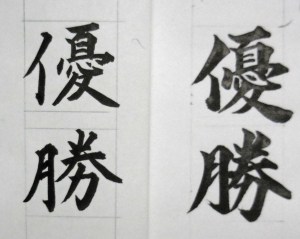 優勝
優勝